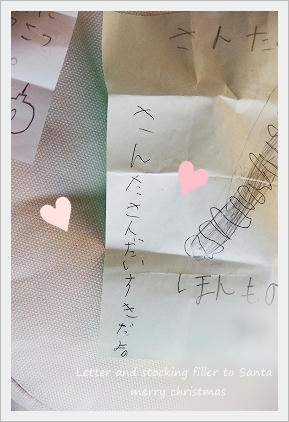 さんた
さんたさんだいすきだよ。
ほんもの
Letter and stocking filler to Santa
merry christmas